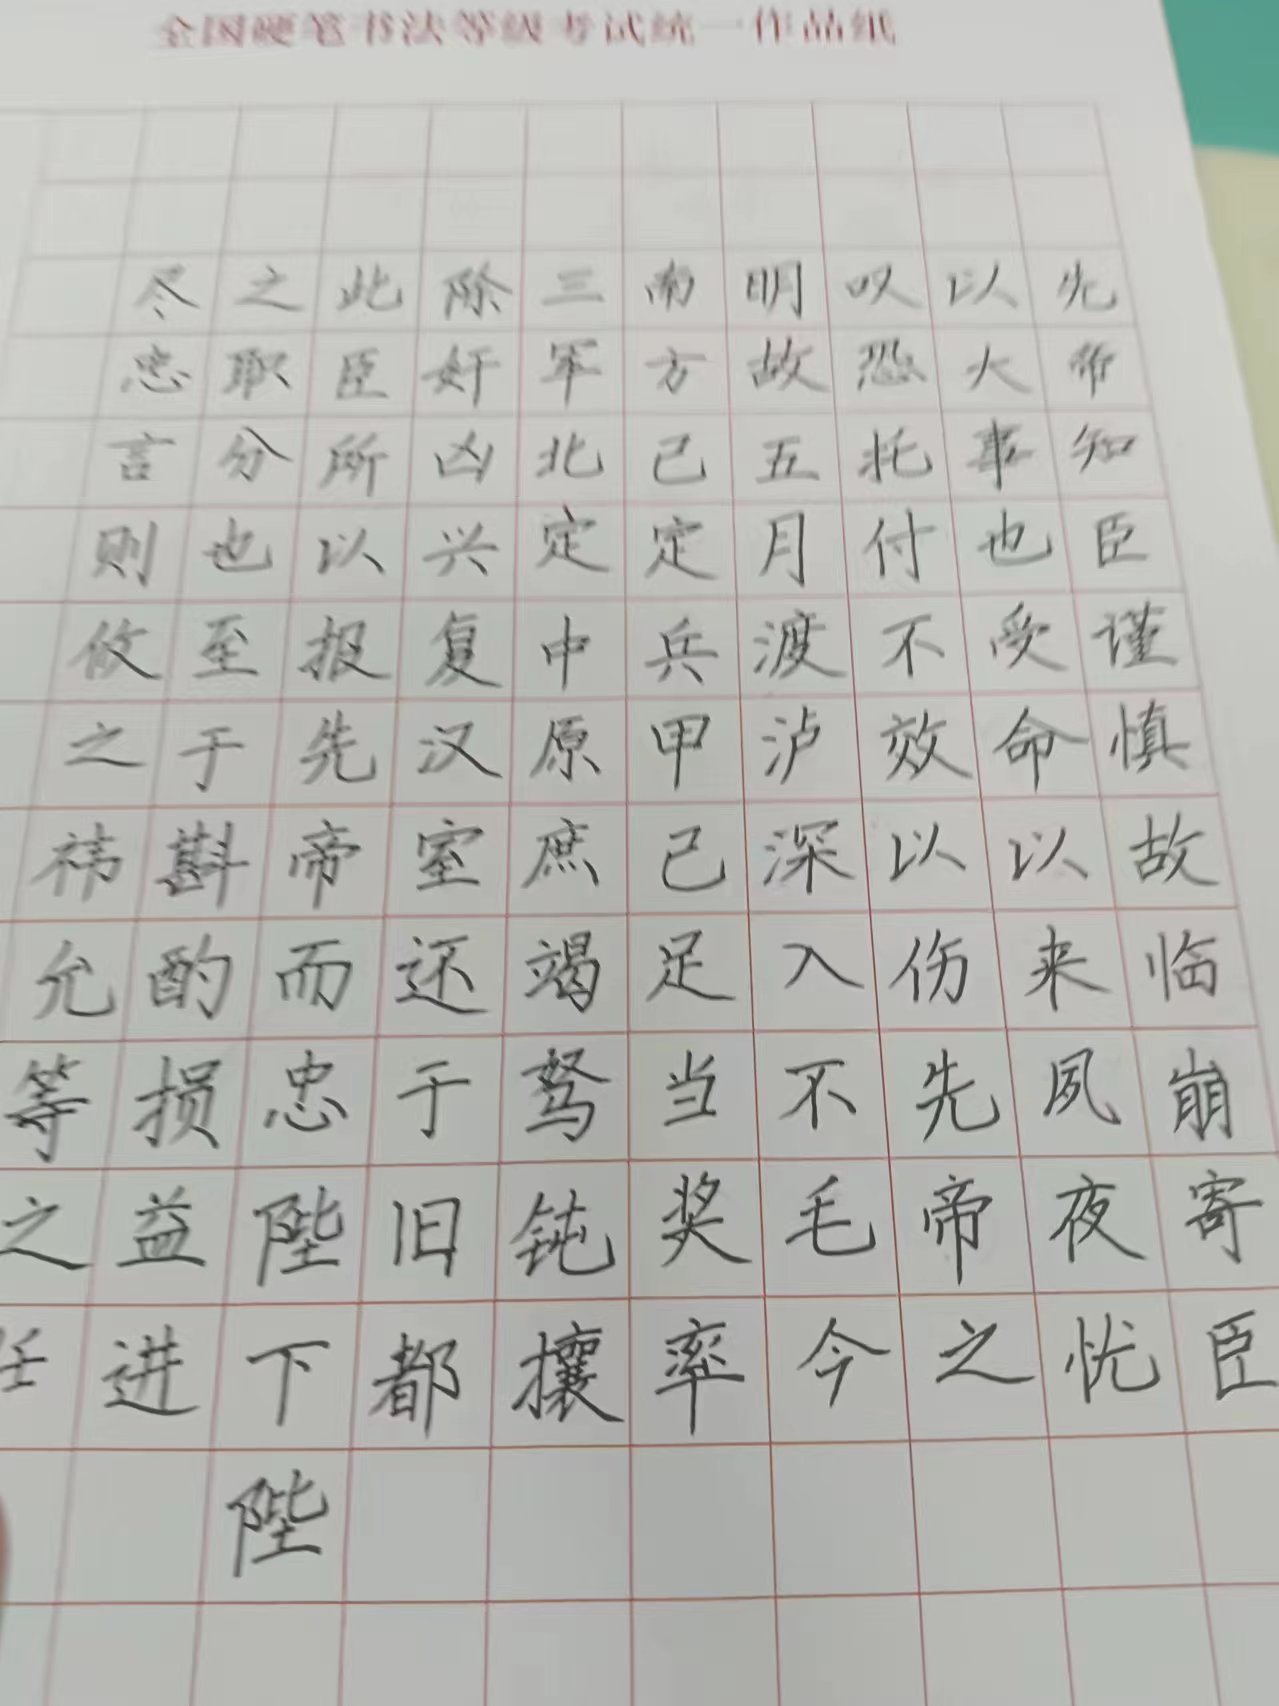 全国硬笔书法等级考试统一作品纸
先帝知臣谨慎故临崩寄臣
以大事也受命以来夙夜忧
叹恐托付不效以伤先帝之
明故五月渡泸深入不毛今
南方已定兵甲已足当奖率
三军北定中原庶竭驽钝攘
除奸凶兴复汉室还于旧都
此臣所以报先帝而忠陛下陛
之职分也至于斟酌损益进
尽忠言则攸之祎允等之任